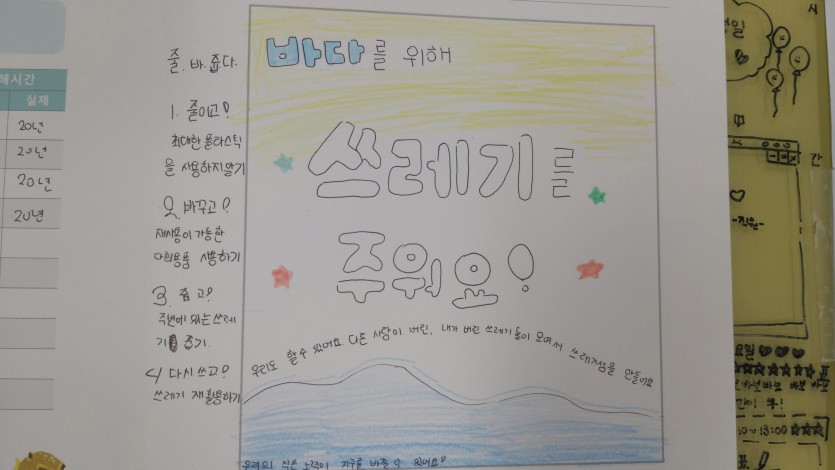 해시간
실제
20년
20년
20년
20년
줄.바.줍다.
1. 줄이고!
최대한 플라스틱
을 사용하지않기
2. 바꾸고!
재사용이 가능한
다회용품 사용하기
3. 줍고!
주변에 있는 쓰레
기 줍기.
4 다시쓰고!
쓰레기 재활용하기
바다를 위해
쓰레기를
주워요!
우리도 할수 있어요 다른 사람이 버린, 내가 버린 쓰레기들이 모여서 쓰레기섬을 만들어요
우리의 작은 노력이 지구를 바꿀 수 있어요!
시
간
-진원-
요일